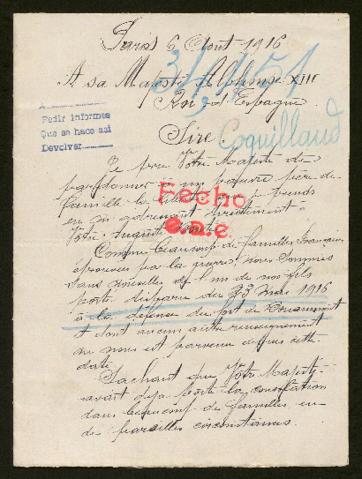 Paris 6 Aout 1916
A sa Majesté Alphonse XIII
Roi d'Espagne
Pedir informes
Que se hace así
Devolver
Sire
Coquillaud
Je prie Votre Majesté de
pardonner à un pauvre père de
famille la liberté qu'il prends
en s'adressant directement à
Votre Auguste
Fecho
Comme beaucoup de familles françaises
éprouvées par la guerre nous sommes
sans nouvelles de l'un de nos fils
porté disparu du 23 Mai 1916
à la défense du fort de Douaumont
et dont aucun autre renseignement
ne nous est parvenu depuis cette
date
Sachant que Votre Majesté
avait déjà porté la consolation
dans beaucoup de familles en
de pareilles circonstances.